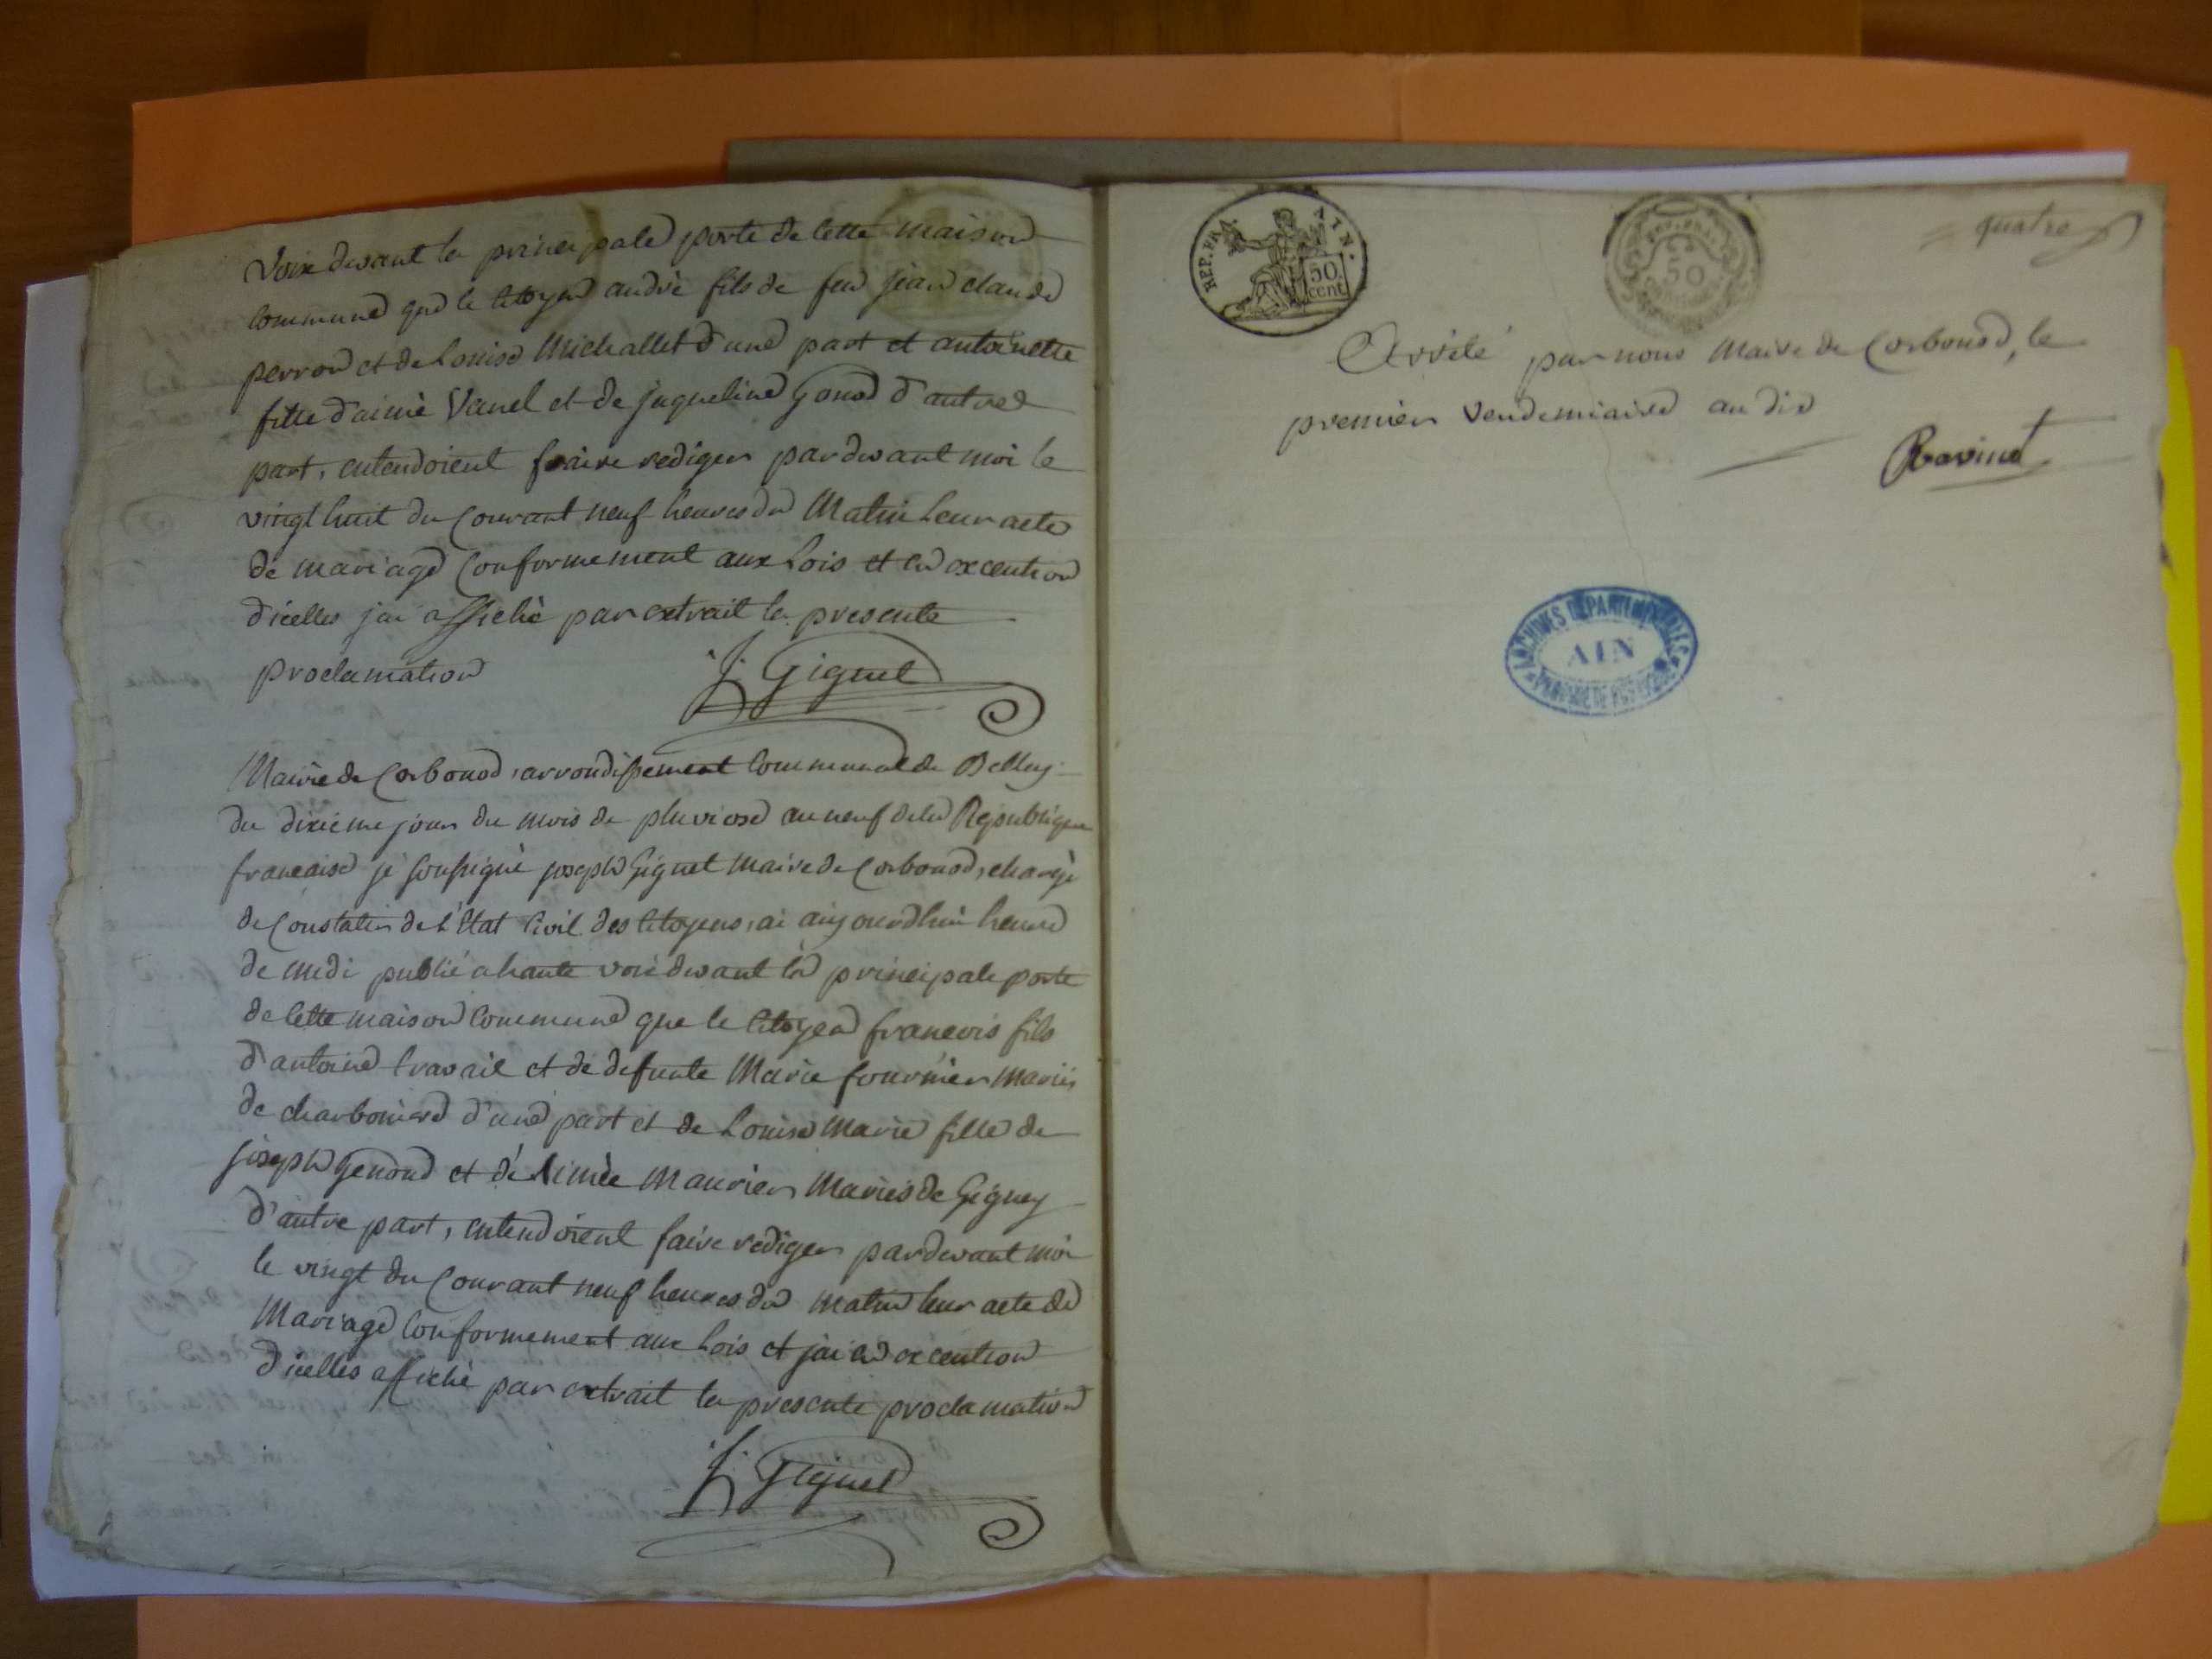 voix devant la principale porte de cette maison
commune que le citoyen andré fils de feu jean claude
perron et de Louise Michallet d'une part et antoinette
fille d'aimé Vanel et de jaqueline gonod d'autre
part, entendoient faire rediger pardevant moi le
vingt huit du Courant neuf heures du Matin Leur acte
de mariage Conformement aux Lois et en execution
d'icelles jai affiché par extrait la presente
proclamation
J. Giguet
Mairie de Corbonod, arrondissement Communal de Belley
du dixième jour du mois de pluviose an neuf de la Republique
francaise je soussigné joseph Giguet maire de Corbonod, chargé
de Constater de L'Etat Civil des Citoyens, ai aujourdhui heure
de midi publié a haute voix devant la principale porte
de cette maison Commune que le Citoyen francois fils
d'antoine travail et de defunte Marie fournier mariés
de charboniere d'une part et de Louise Marie fille de
joseph genoud et d'Aimée Maurier Mariés de Gigney
d'autre part, entendoient faire rediger pardevant moi
le vingt du Courant neuf heures du matin leur acte de
Mariage Conformement aux Lois et jai en execution
d'icelles affiché par extrait la presente proclamation
J. Giguet
REP. FRA. AIN.
50 cent
REP. FRA.
50
CENTIMES
quatre
Arrêté par nous Maire de Corbonod, le
premier Vendemiaire an dix
Ravinet
ARCHIVES DEPARTEMENTALES
AIN
PROPRIETE PUBLIQUE